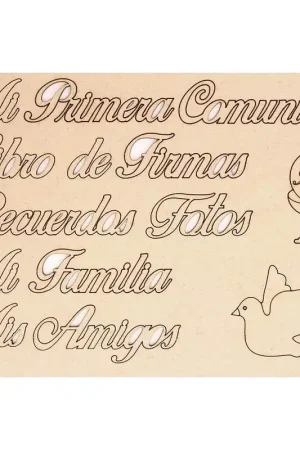 Mi Primera Comuni
Libro de Firmas
Recuerdos Fotos
Mi Familia
Mis Amigos